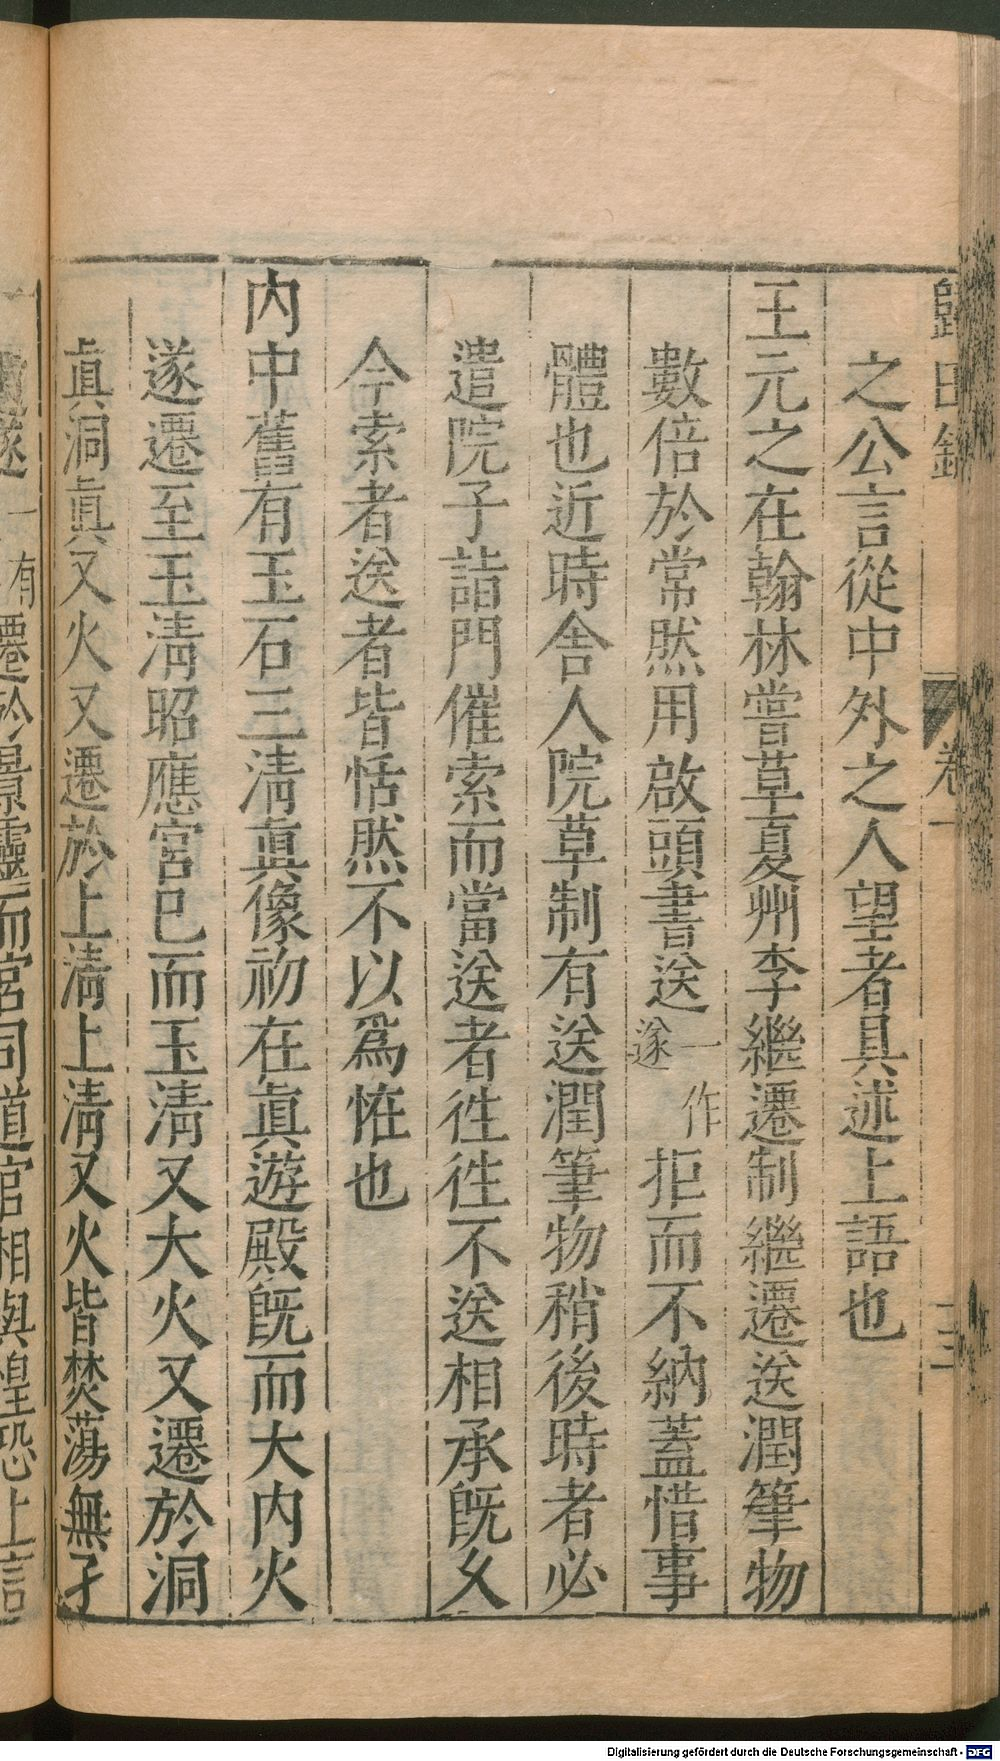 歸田錄 卷一 三
之公言從中外之人望者具述上語也
王元之在翰林嘗草夏州李繼遷制繼遷送潤筆物
數倍於常然用啟頭書送一作遂拒而不納蓋惜事
體也近時舍人院草制有送潤筆物稍後時者必
遣院子詣門催索而當送者徃徃不送相承旣久
今索者送者皆恬然不以爲恠也
內中舊有玉石三淸眞像初在眞遊殿旣而大內火
遂遷至玉淸昭應宮已而玉淸又大火又遷於洞
眞洞眞又火又遷於上淸上淸又火皆焚蕩無孑
遂一有遷於景靈而宮司道官相與惶恐上言
Digitalisierung gefördert durch die Deutsche Forschungsgemeinschaft - DFG